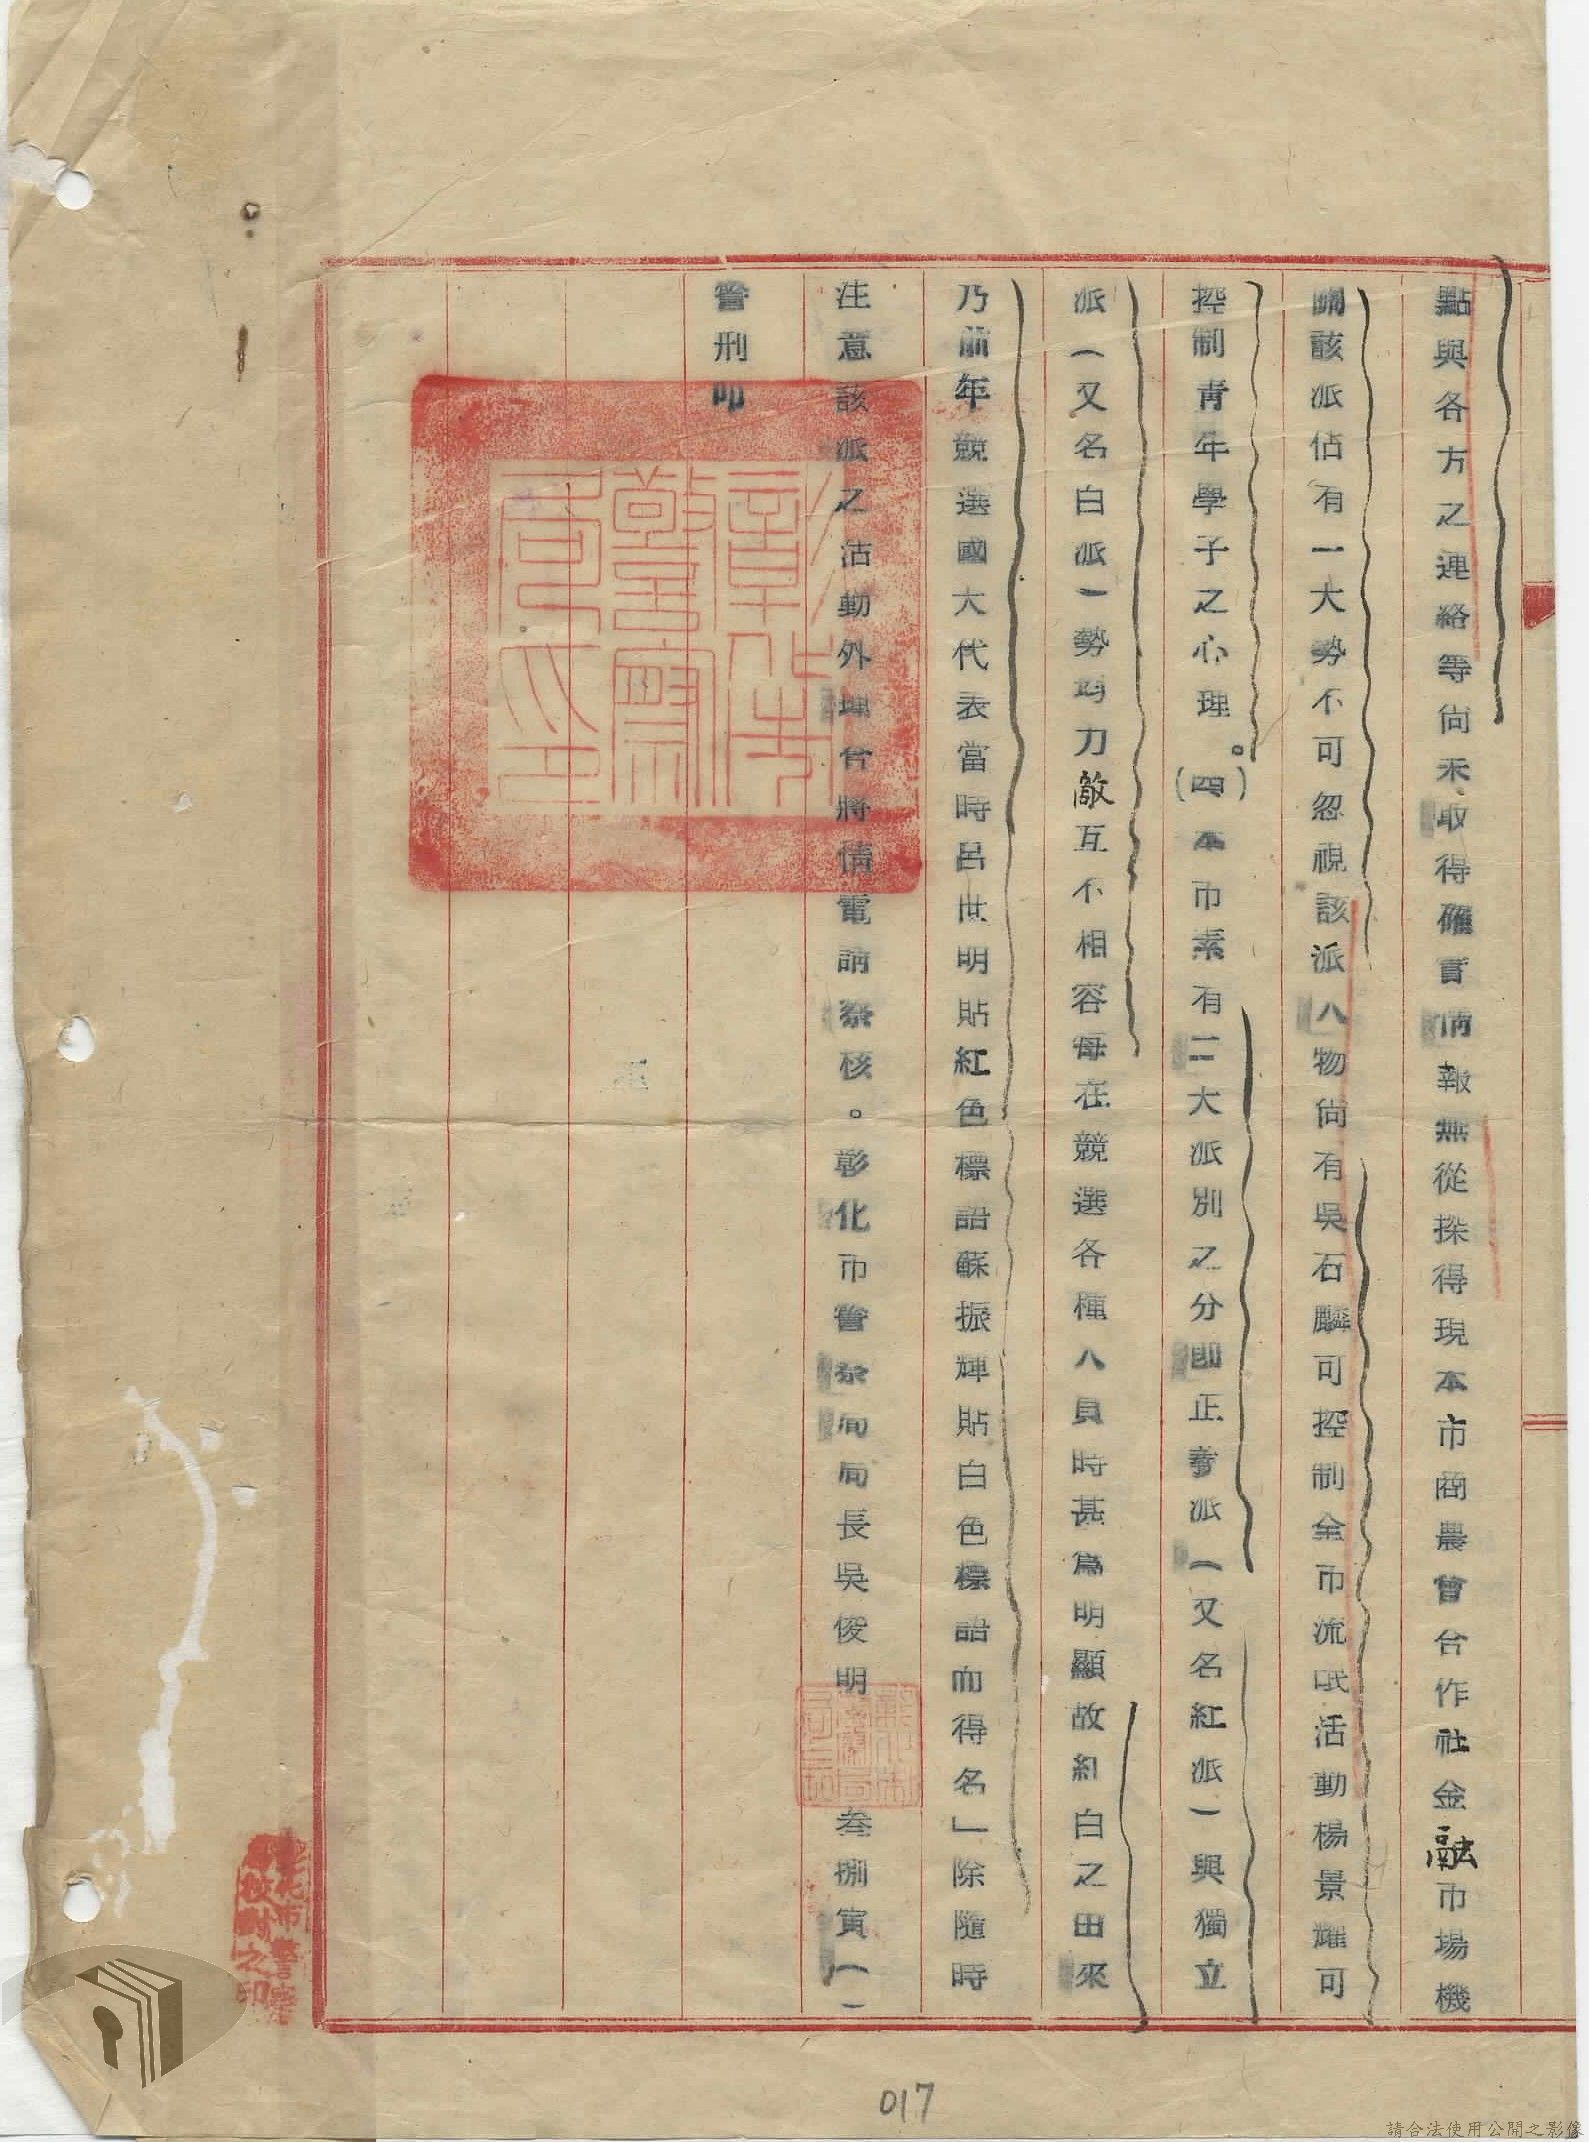 點與各方之連絡等尚未取得確實情報無從探得現本市商農會合作社金融市場機
關該派佔有一大勢不可忽視該派人物尚有吳石麟可控制全市流氓活動楊景耀可
控制青年學子之心理。(四)本市素有二大派別之分即正義派(又名紅派)與獨立
派(又名白派)勢均力敵互不相容每在競選各種人員時甚為明顯故紅白之由來
乃前年競選國大代表當時呂世明貼紅色標語蘇振輝貼白色標語而得名」除隨時
注意該派之活動外理合將情電請察核。彰化市警察局局長吳俊明 叁捌寅(一)
警刑叩
彰化市警察局印
彰化市警察局長
彰化市警察局校對之印
017
請合法使用公開之影像